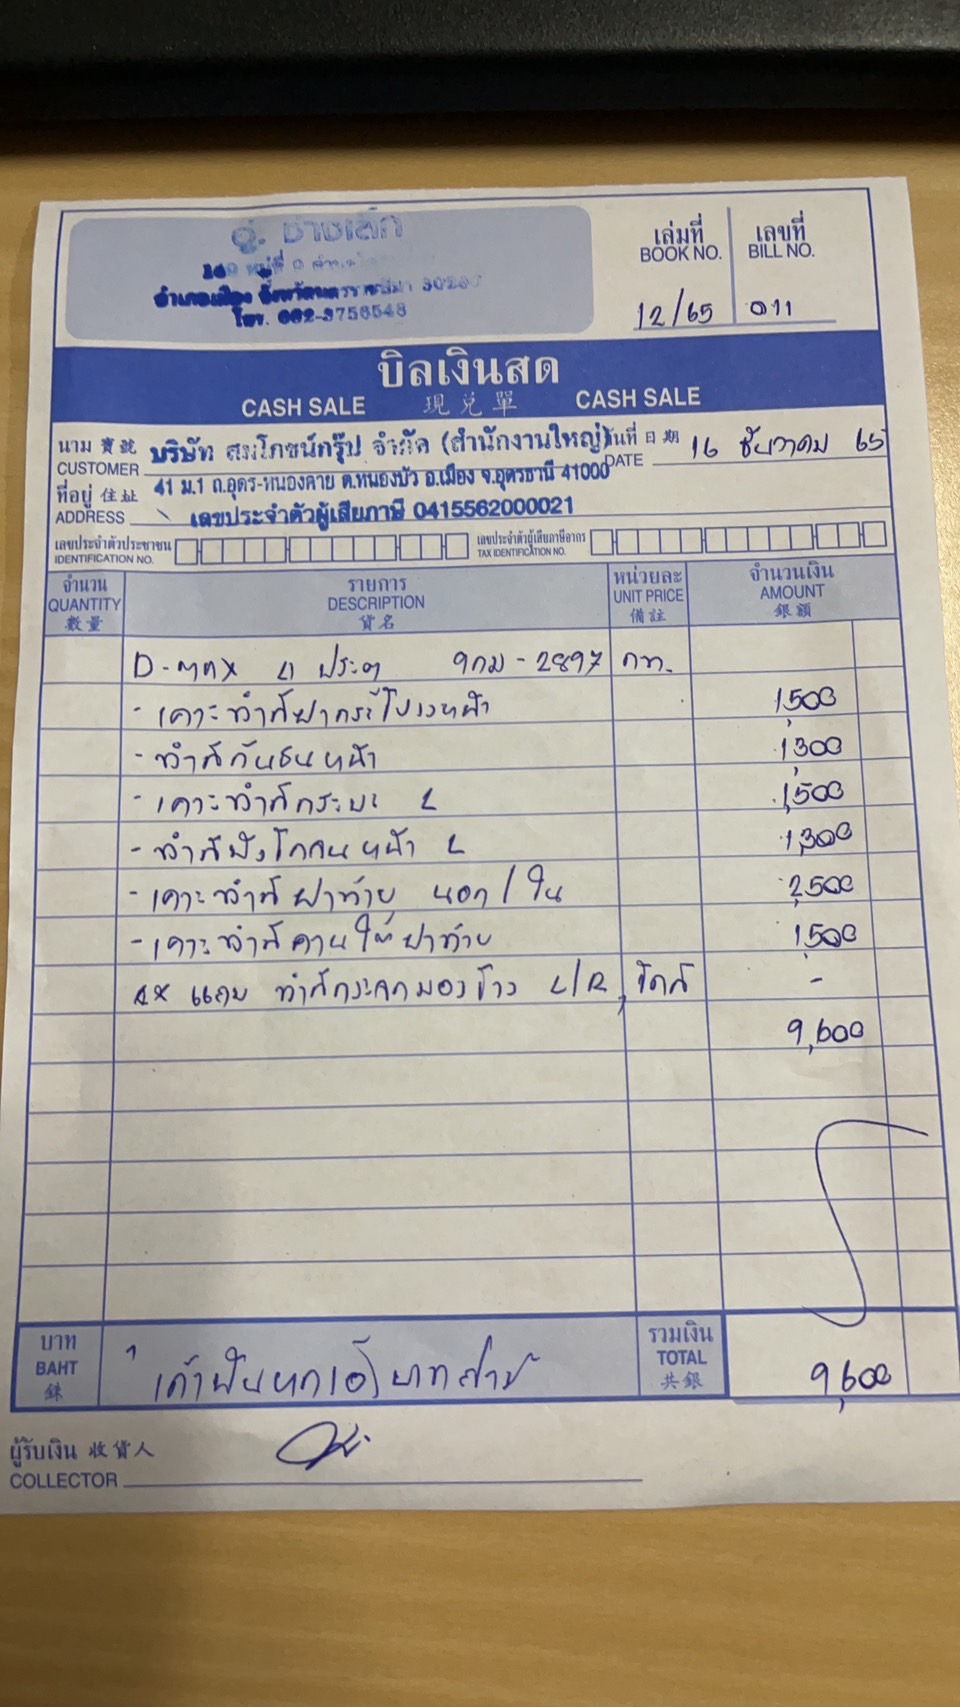 อู่. ช่างเล็ก
อำเภอเมือง จังหวัดนครราชสีมา
โทร. 082-3756548
เล่มที่ เลขที่
BOOK NO. BILL NO.
12/65 011
บิลเงินสด
CASH SALE 現兑單 CASH SALE
นาม 寶號 บริษัท สมโภชน์กรุ๊ป จำกัด (สำนักงานใหญ่) วันที่ 日期 16 ธันวาคม 65
CUSTOMER DATE
ที่อยู่ 住址 41 ม.1 ถ.อุดร-หนองคาย ต.หนองบัว อ.เมือง จ.อุดรธานี 41000
ADDRESS เลขประจำตัวผู้เสียภาษี 0415562000021
เลขประจำตัวประชาชน เลขประจำตัวผู้เสียภาษีอากร
IDENTIFICATION NO. TAX IDENTIFICATION NO.
จำนวน รายการ หน่วยละ จำนวนเงิน
QUANTITY DESCRIPTION UNIT PRICE AMOUNT
數量 貨名 備註 銀額
D-max 4 ประตู 9กม-2897 กท.
- เคาะทำสีฝากระโปรงหน้า 1,500
- ทำสีกันชนหน้า 1,300
- เคาะทำสีกระบะ L 1,500
- ทำสีบังโคลนหน้า L 1,300
- เคาะทำสีฝาท้าย นอก/ใน 2,500
- เคาะทำสีคานใต้ฝาท้าย 1,500
แถม ทำสีกระจกมองข้าง L/R, ขัดสี -
9,600
บาท รวมเงิน
BAHT เก้าพันหกร้อยบาทถ้วน TOTAL 9,600
銖 共銀
ผู้รับเงิน 收貨人
COLLECTOR